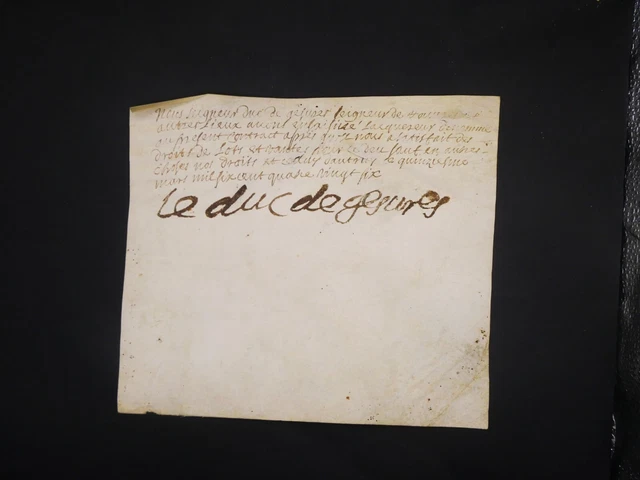 Nous seigneur duc de gesvres seigneur de
autres lieux avons ensaisiné lacquereur denomme
au present contract apres quil nous a satisfait des
droits de Lots et vantes pour le deu sauf en autres
choses nos droits et celuy dautruy le quinziesme
mars mil six cent quatre vingt six
Le duc de gesvres